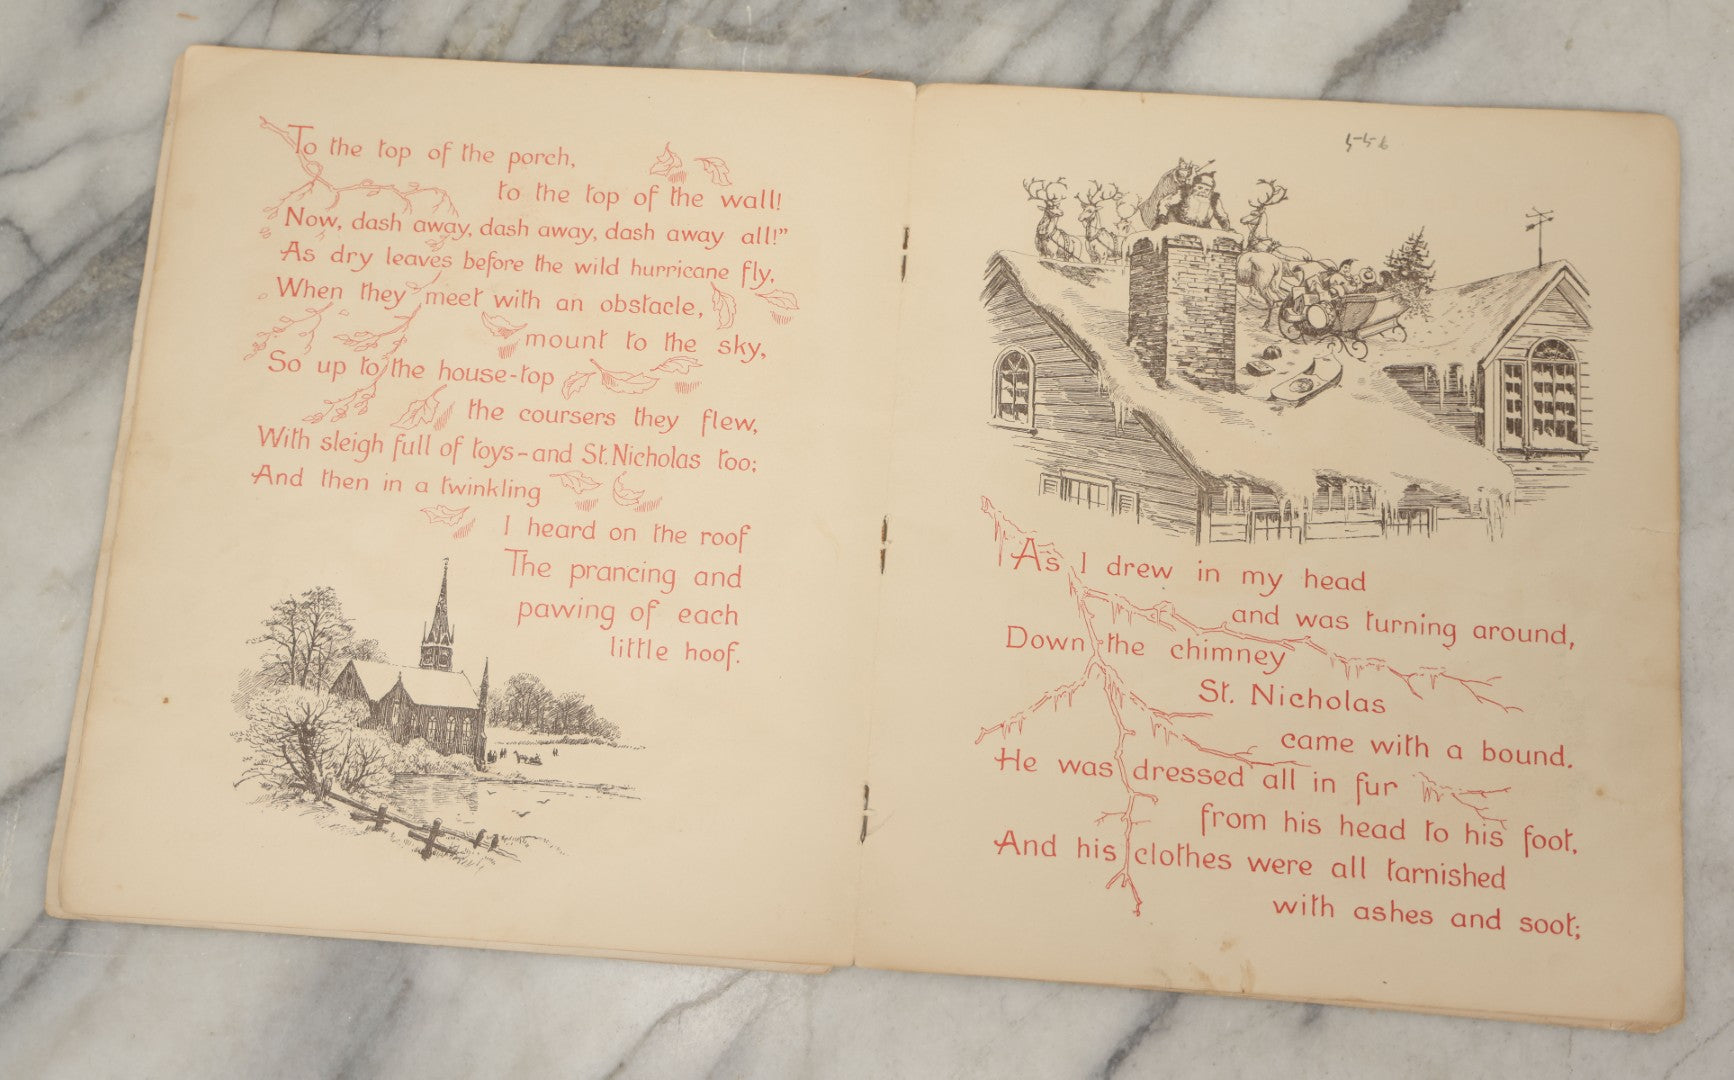 To the top of the porch,
to the top of the wall!
Now, dash away, dash away, dash away all!"
As dry leaves before the wild hurricane fly,
When they meet with an obstacle,
mount to the sky,
So up to the house-top
the coursers they flew,
With sleigh full of toys-and St. Nicholas too;
And then in a twinkling
I heard on the roof
The prancing and
pawing of each
little hoof.
556
As I drew in my head
and was turning around,
Down the chimney
St. Nicholas
came with a bound.
He was dressed all in fur
from his head to his foot,
And his clothes were all tarnished
with ashes and soot;